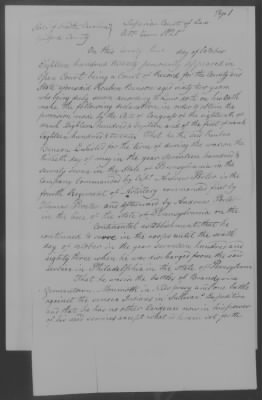 Page 1
State of North Carolina Superior Court of Law
County Term 1820
On this day of October
Eighteen hundred twenty personally appeared in
Open Court being a Court of Record for the County and
State aforesaid Reuben aged sixty two years
who being duly sworn according to law doth on his oath
make the following declaration in order to obtain the
provision made by the Acts of Congress of the eighteenth of
march Eighteen hundred & Eighteen and of the first of march
Eighteen hundred & twenty That he the said Reuben
Enlisted for the term of during the war on the
day of may in the year Seventeen hundred &
seventy seven in the State of Pennsylvania in the
Company Commanded by Capt Andrew Porter in the
fourth Regiment of Artillery commanded first by
Thomas Proctor and afterwards by Andrew Porter
in the line of the State of Pennsylvania on the
Continental establishment that he
continued to serve in the corps until the
day of october in the year Seventeen hundred and
eighty three when he was discharged from the said
service in Philadelphia in the State of Pennsylvania
That he was in the battles of Brandywine
Germantown Monmouth in Newjersey and one battle
against the seneca Indians in Sullivans Expedition
and that he has no other Evidence now in his power
of his said services except what is herein set forth